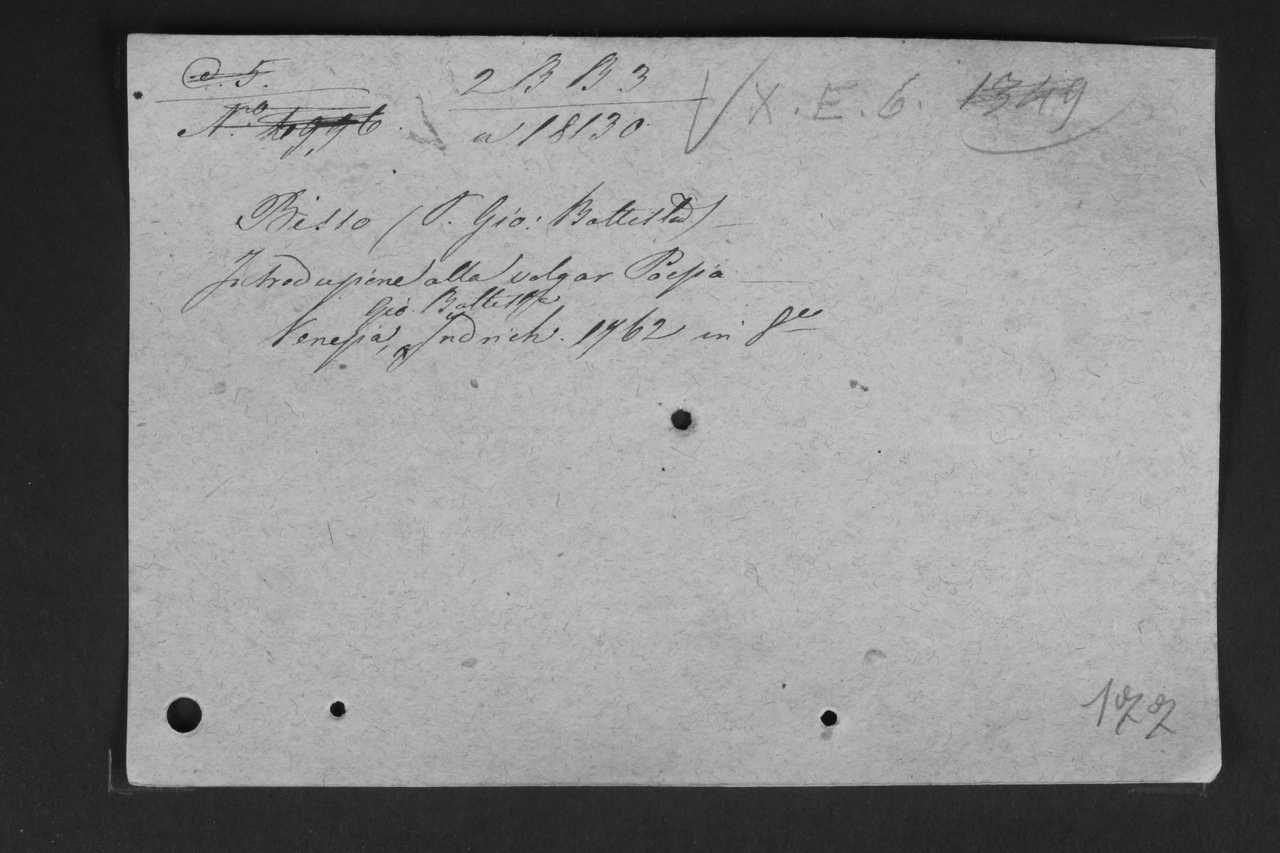 d. 5. 2 B B 3
X. E. 6. 1349
Nro a 18130
Bisso (P. Gio: Battista)
Introduzione alla volgar Poesia
Gio. Battista
Venezia, Indrich. 1762 in 8vo
177